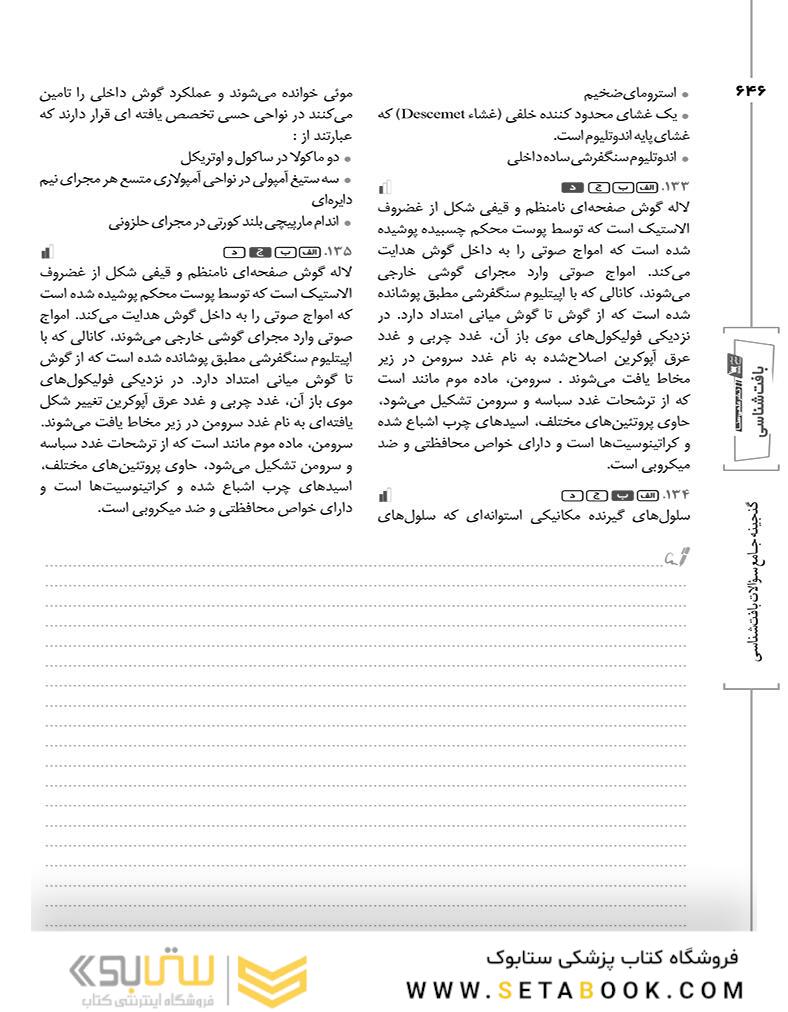 ۶۴۶
• استرومای ضخیم
• یک غشای محدود کننده خلفی (غشاء Descemet) که
غشای پایه اندوتلیوم است.
• اندوتلیوم سنگفرشی ساده داخلی
۱۳۳. الف ب ج د
لاله گوش صفحه‌ای نامنظم و قیفی شکل از غضروف
الاستیک است که توسط پوست محکم چسبیده پوشیده
شده است که امواج صوتی را به داخل گوش هدایت
می‌کند. امواج صوتی وارد مجرای گوشی خارجی
می‌شوند، کانالی که با اپیتلیوم سنگفرشی مطبق پوشانده
شده است که از گوش تا گوش میانی امتداد دارد. در
نزدیکی فولیکول‌های موی باز آن، غدد چربی و غدد
عرق آپوکرین اصلاح‌شده به نام غدد سرومن در زیر
مخاط یافت می‌شوند . سرومن، ماده موم مانند است
که از ترشحات غدد سباسه و سرومن تشکیل می‌شود،
حاوی پروتئین‌های مختلف، اسیدهای چرب اشباع شده
و کراتینوسیت‌ها است و دارای خواص محافظتی و ضد
میکروبی است.
۱۳۴. الف ب ج د
سلول‌های گیرنده مکانیکی استوانه‌ای که سلول‌های
موئی خوانده می‌شوند و عملکرد گوش داخلی را تامین
می‌کنند در نواحی حسی تخصص یافته ای قرار دارند که
عبارتند از :
• دو ماکولا در ساکول و اوتریکل
• سه ستیغ آمپولی در نواحی آمپولاری متسع هر مجرای نیم
دایره‌ای
• اندام مارپیچی بلند کورتی در مجرای حلزونی
۱۳۵. الف ب ج د
لاله گوش صفحه‌ای نامنظم و قیفی شکل از غضروف
الاستیک است که توسط پوست محکم پوشیده شده است
که امواج صوتی را به داخل گوش هدایت می‌کند. امواج
صوتی وارد مجرای گوشی خارجی می‌شوند، کانالی که با
اپیتلیوم سنگفرشی مطبق پوشانده شده است که از گوش
تا گوش میانی امتداد دارد. در نزدیکی فولیکول‌های
موی باز آن، غدد چربی و غدد عرق آپوکرین تغییر شکل
یافته‌ای به نام غدد سرومن در زیر مخاط یافت می‌شوند.
سرومن، ماده موم مانند است که از ترشحات غدد سباسه
و سرومن تشکیل می‌شود، حاوی پروتئین‌های مختلف،
اسیدهای چرب اشباع شده و کراتینوسیت‌ها است و
دارای خواص محافظتی و ضد میکروبی است.
بافت‌شناسی
گنجینه جامع سؤالات بافت‌شناسی
فروشگاه کتاب پزشکی ستابوک
WWW.SETABOOK.COM
ستابوک
فروشگاه اینترنتی کتاب